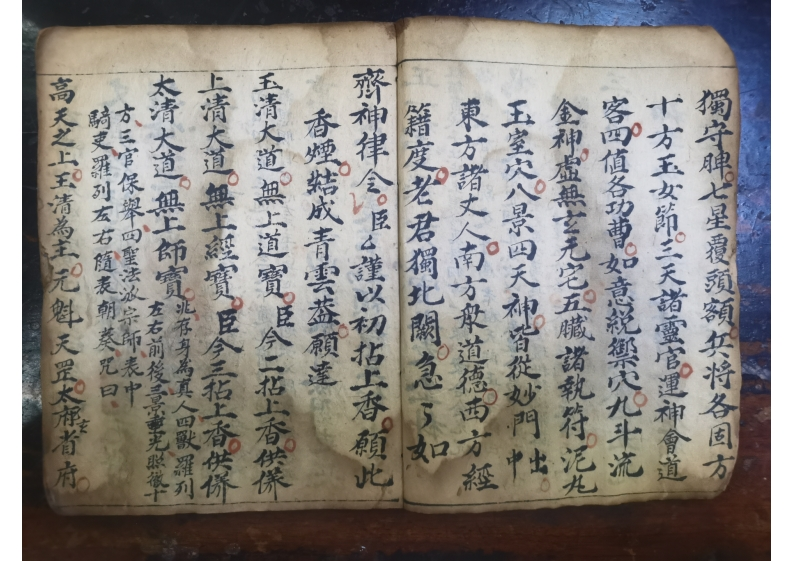 獨守脾七星覆頭額兵將各固方
十方玉女節三天諸靈官運神會道
客四值各功曹如意統禦穴九斗流
金神虛無玄元宅五臟諸執符泥丸
玉室穴八景四天神皆從妙門出中
東方諸丈人南方般道德西方經
籍度老君獨北闕急々如
齊神律令臣厶謹以初拈上香願此
香煙結成青雲蓋願達
玉清大道無上道寶臣今二拈上香供儀
上清大道無上經寶臣今三拈上香供儀
太清大道無上師寶兆存身為真人四獸羅列
左右前後三景垂光照徹十
方三官保舉四聖法派宗師表中
騎吏羅列左右隨表朝奏咒曰
高天之上玉清為主元魁天罡太玄省府